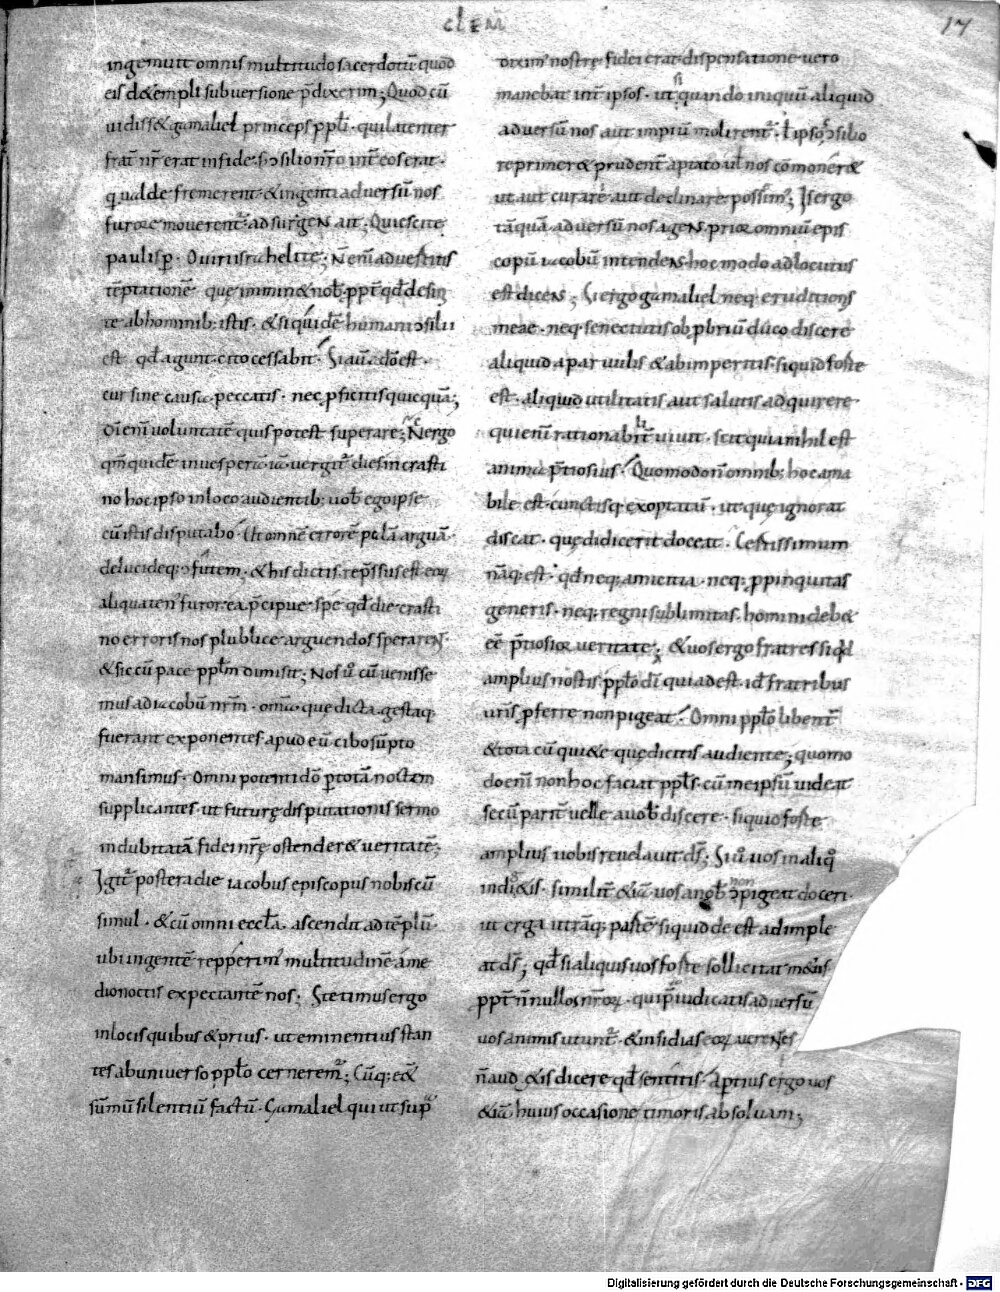 CLEM
17
ingemuit omnis multitudo sacerdotū quod
eis de templi subversione p̄dixerim; Quod cū
uidiss& gamaliel princeps ppl̄i · qui latenter
frat̄ nr̄ erat in fide · s; ɔsilio nr̄o int̄ eos erat ·
quia ualde fremerent · & ingenti adversū nos
furore moverent̄ · adsurgens ait; Quiescite
paulisp · O viri israhelite; N̄ enī advertitis
tēptationē que immin& nob̄; ppt̄ qd̄ desini
te ab hominib; istis · & siquidē humani ɔsilii
est qd̄ agunt · cito cessabit · Si aū a dō est ·
cur sine causa peccatis · nec pficitis quicquā;
Dī enī voluntatē quis potest superare; N̄c ergo
qm̄ quidē in uesperū iā vergit̄ dies · in crasti
no hoc ipso in loco audientib; uob̄ ego ipse
cū istis disputabo · Ut omnē errorē palā arguā ·
& his dictis rep̄ssus est eoꝝ
aliquaten furor · ea p̄cipue spe qd̄ die crasti
no erroris nos plublice arguendos sperarent
& sic cū pace ppl̄m dimisit; Nos ū cū uenisse
mus ad iacobū nr̄m · omia que dicta gestaq;
fuerant exponentes apud eū cibo sūpto
mansimus · Omnipotenti dō p totā noctem
supplicantes · ut future disputationis sermo
indubitatā fidei nr̄e ostender& ueritatē;
Igit̄ postera die iacobus episcopus nobiscū
simul · & cū omni eccl̄a · ascendit ad tēplū ·
ubi ingentē repperim̄ multitudinē a me
dio noctis expectantē nos; Stetimus ergo
in locis quibus & prius · ut eminentius stan
tes ab universo ppl̄o cerneremur; Cūq; e&̄
sūmū silentiū factū · Gamaliel qui ut sup̄
dixim̄ nostre fidei erat · dispensatione uero
manebat int̄ ipsos · ut si quando iniquū aliquid
adversū nos aut impiū molirent̄ · ł ipsoꝝ ɔsilio
reprimer& prudent̄ aptato ul̄ nos cōmoner&
ut aut curare aut declinare possim̄; Is ergo
tāquā adversū nos agens prior omniū epis
copū iacobū intendens hoc modo adlocutus
est dicens; Si ergo gamaliel neq; eruditionis
meae · neq; senectutis obpbriū duco discere
aliquid a parvulis & ab imperitis · siquid forte
est · aliquid utilitatis aut salutis adquirere
qui enī rationabilit̄ uiuit · scit quia nihil est
anima p̄tiosius · Quomodo n̄ omnib; hoc ama
bile est · cunctisq; exoptatū · ut que ignorat
discat · que didicerit doceat · Certissimum
nāq; est · qd̄ neq; amicitia · neq; ppinquitas
generis · neq; regni sublimitas · homini deb&
eē p̄tiosior ueritate; & uos ergo fratres siqd̄
amplius nostis · ppl̄o dī qui adest id fratribus
uris pferre non pigeat · Omni ppl̄o libent̄
& tota cū qui&e que dicitis audiente; quomo
do enī non hoc faciat ppl̄s · cū me ipsū uideat
secū parit̄ uelle a uob̄ discere · siquid forte
amplius uobis revelavit ds̄; Si ū uos in aliq̊
indig&is · similit̄ & iā uos a nob̄ non pigeat doceri ·
ut erga utrāq; partē siquid deest adimple
at ds̄; qd̄ si aliquis uos forte sollicitat m&us
ppt̄ n̄nullos nr̄oꝝ · qui p̄iudicatis adversū
uos animis utunt̄ · & insidias eoꝝ uerentes
n̄ aud&is dicere qd̄ sentitis · Aptius ergo uos
& iā huius occasione timoris absoluam;
Digitalisierung gefördert durch die Deutsche Forschungsgemeinschaft - DFG